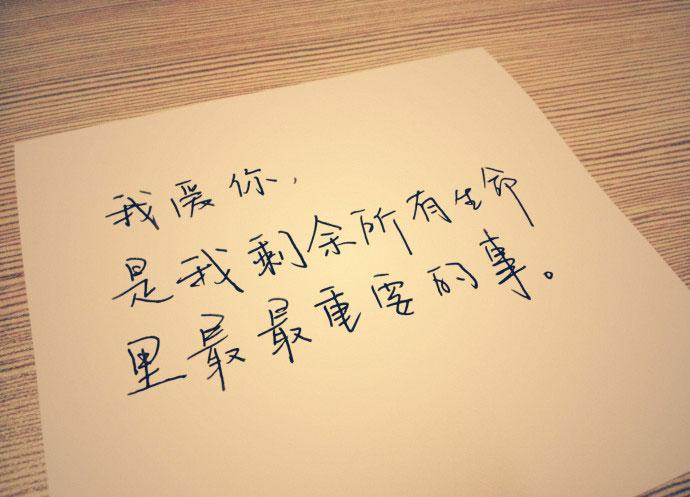 我爱你,
是我剩余所有生命
里最最重要的事。